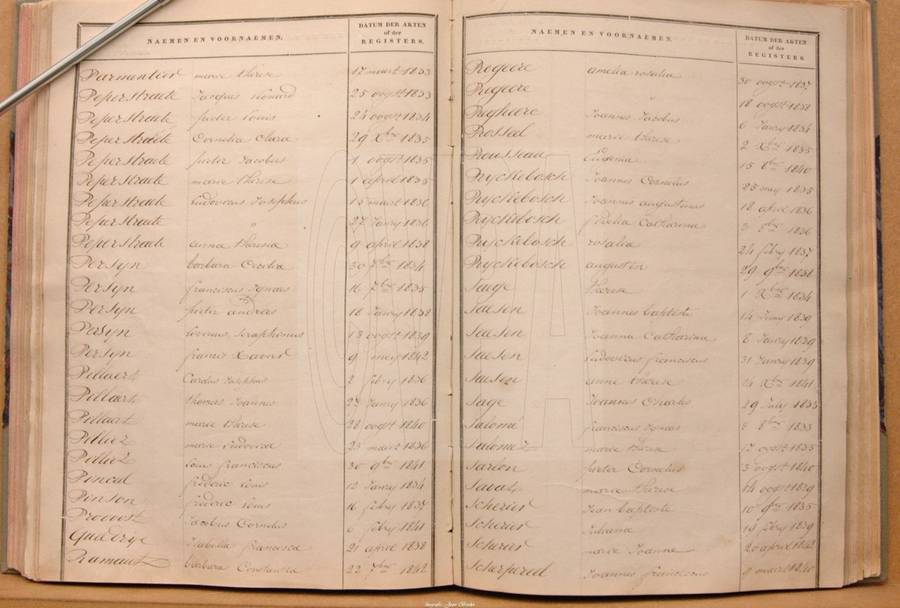 NAEMEN EN VOORNAEMEN.
DATUM DER AKTEN
of der
REGISTERS.
Parmentier marie thérèse 17 maart 1833
Peperstraete Jacques Léonard 25 oogst 1833
Peperstraete pieter Louis 24 oogst 1834
Peperstraete Cornelia Clara 29 Xbre 1835
Peperstraete pieter Jacobus 1 oogst 1835
Peperstraete marie thérèse 1 april 1835
Peperstraete Ludovicus Josephus 15 maart 1836
Peperstraete 27 Janry 1836
Peperstraete anna theresia 9 april 1838
Persyn barbara Cecilia 30 7bre 1834
Persyn franciscus Ignaes 16 7bre 1835
Persyn pieter andries 18 Janry 1838
Persyn Seraphinus 13 oogst 1839
Persyn francis Xavier 9 mey 1842
Pillaert Carolus Josephus 2 febry 1836
Pillaert thomas Joannes 27 Janry 1836
Pillaert marie thérèse 28 oogst 1840
Pilliez marie Ludovica 23 maart 1836
Pilliez Louis franciscus 30 9bre 1841
Pinced frédéric Louis 12 Janry 1834
Pinson frédéric Louis 16 febry 1837
Provost Jacobus Cornelius 6 febry 1841
Quaderye Isabella francisca 21 april 1838
Ramaut barbara Constantia 22 7bre 1842
NAEMEN EN VOORNAEMEN.
DATUM DER AKTEN
of der
REGISTERS
Rogiere amelia rosalia 30 oogst 1837
Rogiere 18 oogst 1838
Joannes Jacobus 6 Janry 1834
Rossed marie thérèse 2 Xbre 1835
Rousseau Eugenia 15 8bre 1840
Ryckebosch Joannes Cornelius 25 mey 1835
Ryckebosch Joannes augustinus 12 april 1836
Ryckebosch Catharina 8bre 1836
Ryckebosch rosalia 24 febry 1837
Ryckebosch augustin 29 9bre 1838
Saege thérèse 1 Xbre 1834
Saesen Joannes baptiste 14 1839
Saesen Joanna Catharina 8 Janry 1839
Saesen Ludovicus franciscus 31 Janry 1839
Saesen anne thérèse 14 Xbre 1841
Sage Joannes Charles 29 July 1835
Salome franciscus Ignaes 8 8bre 1833
Salomez marie 17 oogst 1835
Sarlon pieter Cornelius 3 oogst 1840
marie thérèse 14 oogst 1839
Scherier Jean baptiste 10 9bre 1835
Scherier Juliana 14 febry 1839
Scherier marie Joanne 20 april 1842
Scherpereel Joannes franciscus 9 maart 1840